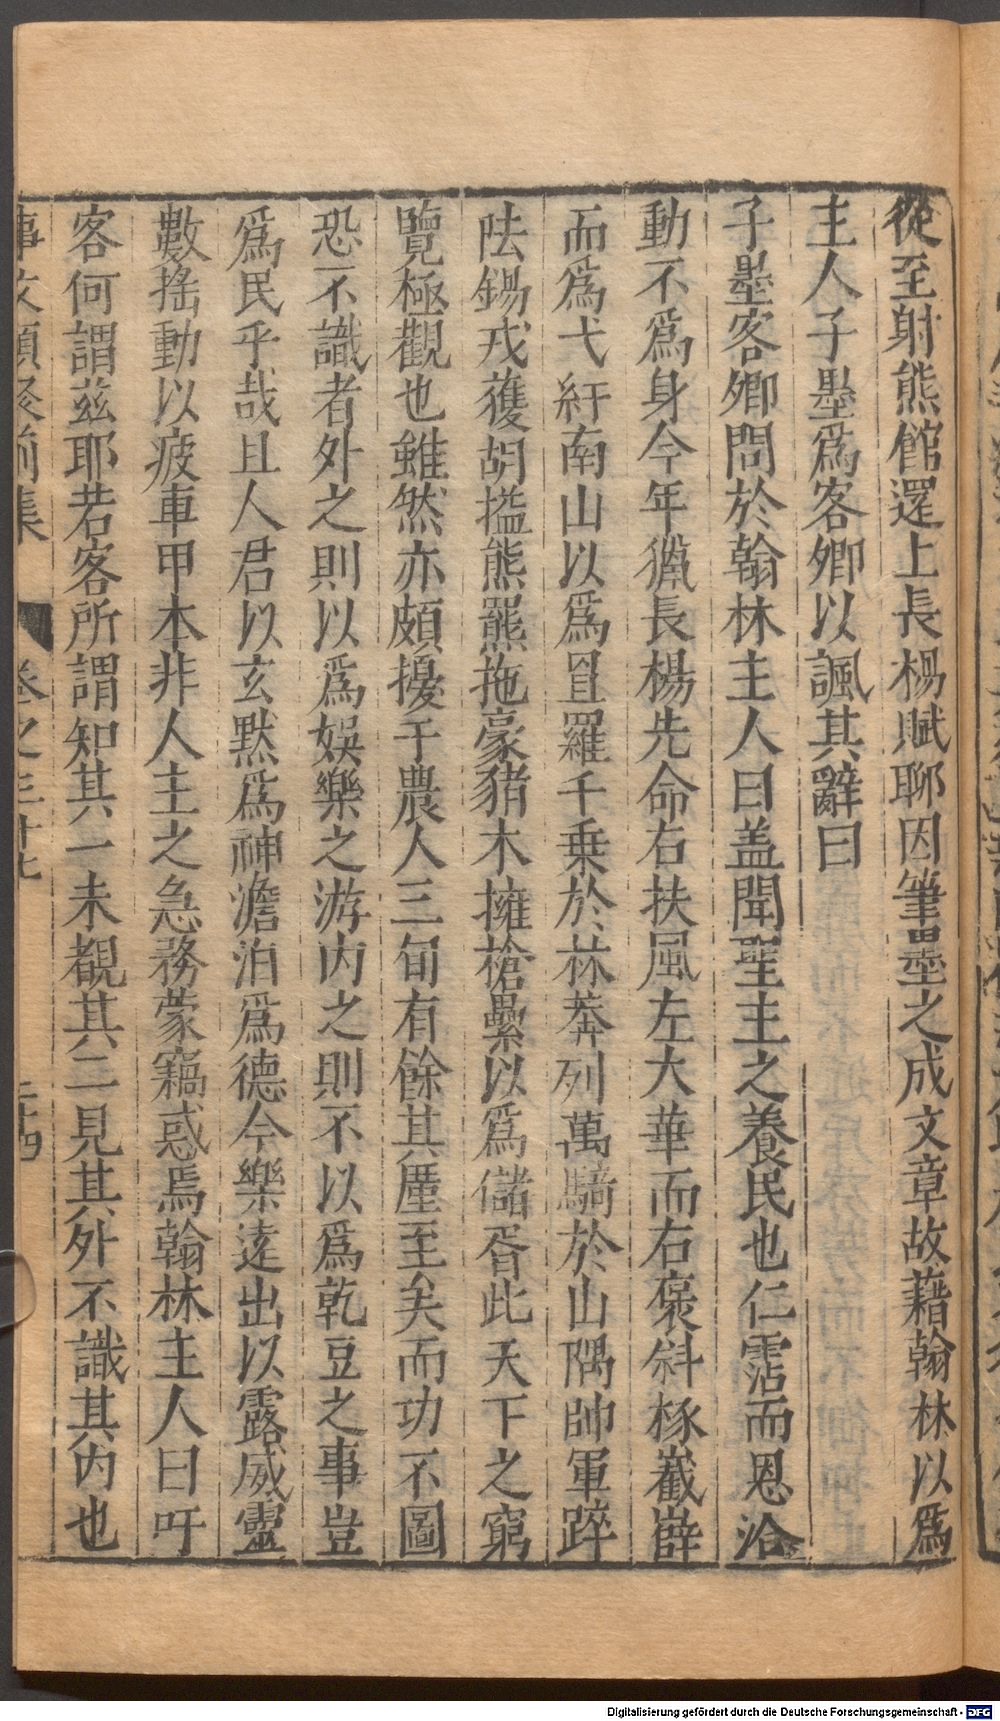 從至射熊館還上長楊賦聊因筆墨之成文章故藉翰林以爲
主人子墨爲客卿以諷其辭曰
子墨客卿問於翰林主人曰盖聞聖主之養民也仁霑而恩洽
動不爲身今年獵長楊先命右扶風左大華而右褒斜椓嶻嶭
而爲弋紆南山以爲罝羅千乗於林莽列萬騎於山隅帥軍踤
阹錫戎獲胡搤熊羆拖豪豬木擁槍纍以爲儲胥此天下之窮
覽極觀也雖然亦頗擾于農人三旬有餘其厪至矣而功不圖
恐不識者外之則以爲娛樂之游内之則不以爲乾豆之事豈
爲民乎哉且人君以玄默爲神澹泊爲德今樂逺出以露威靈
數搖動以疲車甲本非人主之急務蒙竊惑焉翰林主人曰吁
客何謂兹耶若客所謂知其一未覩其二見其外不識其内也
事文類聚前集 卷之三十七 二十四
Digitalisierung gefördert durch die Deutsche Forschungsgemeinschaft - DFG